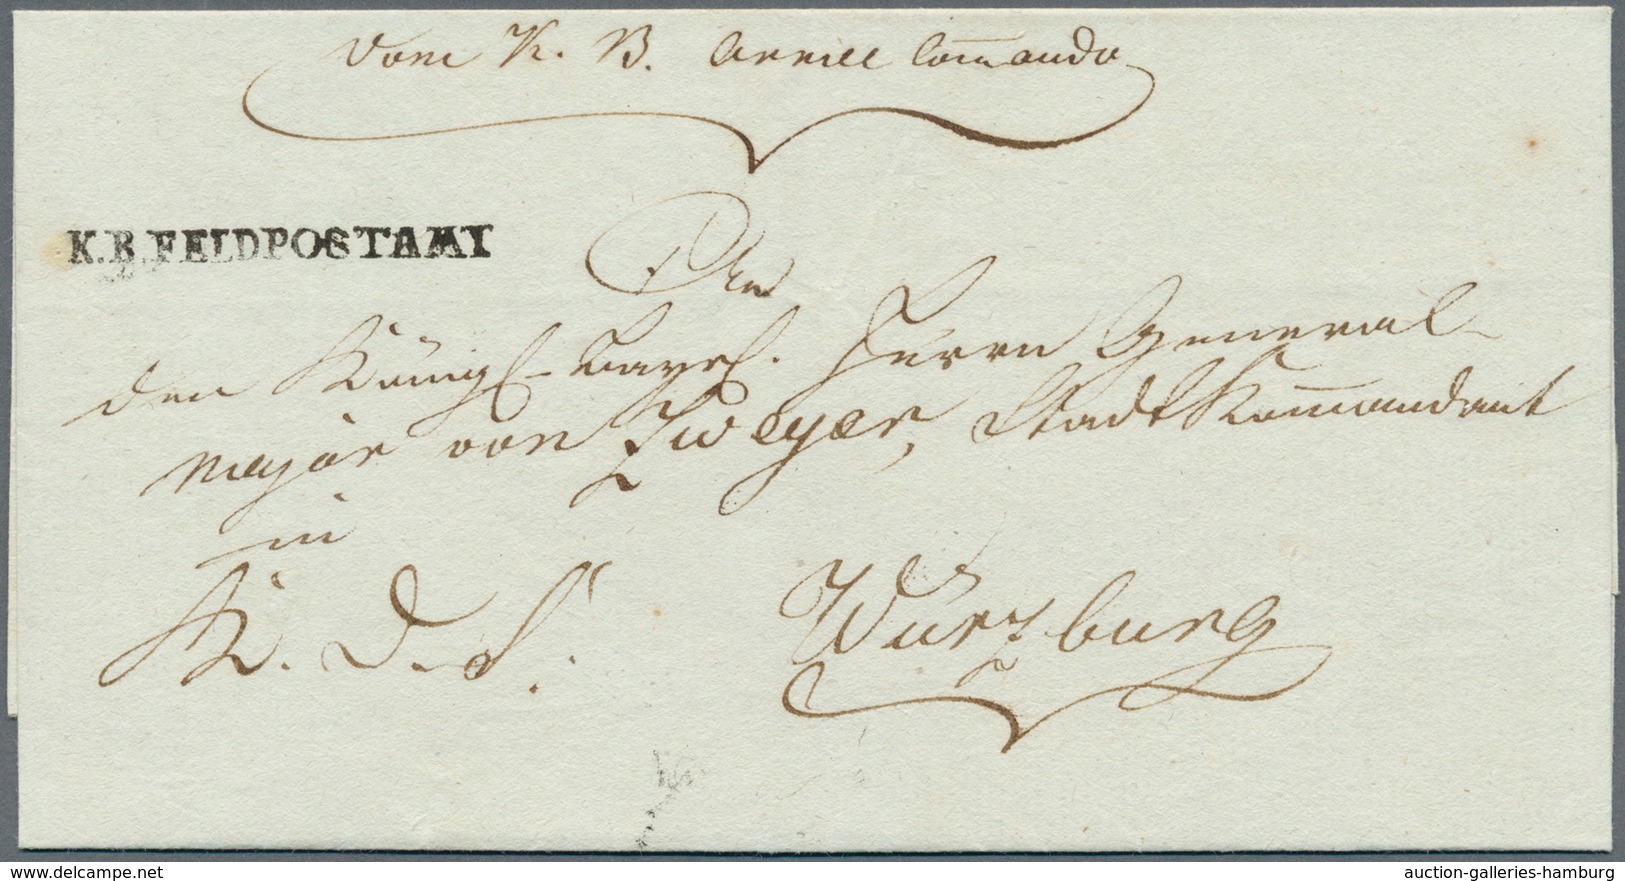 Vom K. B. Armee Com̄ando
K.B.FELDPOSTAMT
An
den Königl. Bayr. Herrn General-
major von Zweyer, Stadt Kom̄andant
in
K. D. S. Würzburg
delcampe.net
auction-galleries-hamburg